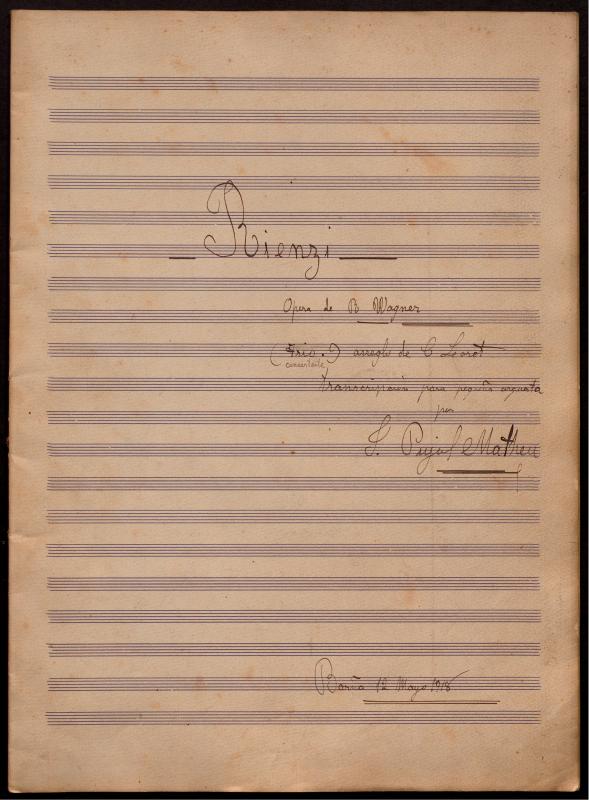 Rienzi
Opera de B Wagner
(Trio.) arreglo de C
concertante
transcripción para pequeña orquesta
por
Pujol Matheu
Barña 12 Mayo 1918